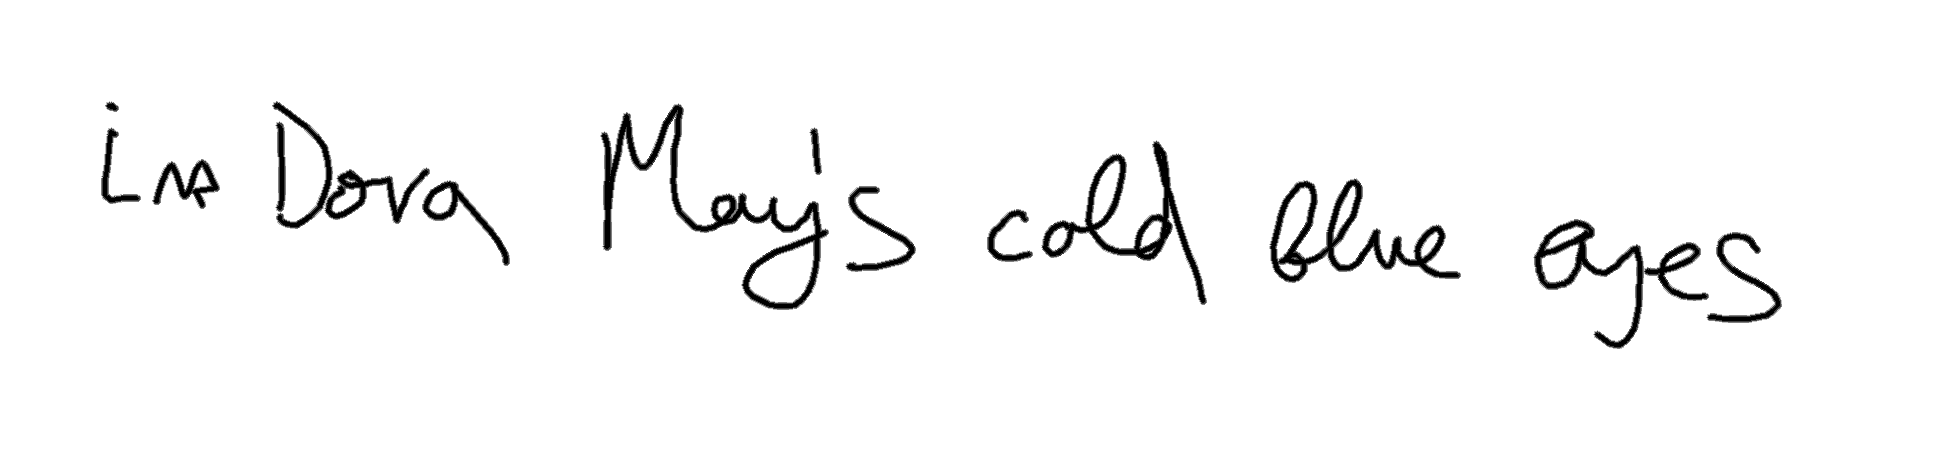 in Dora May's cold blue eyes